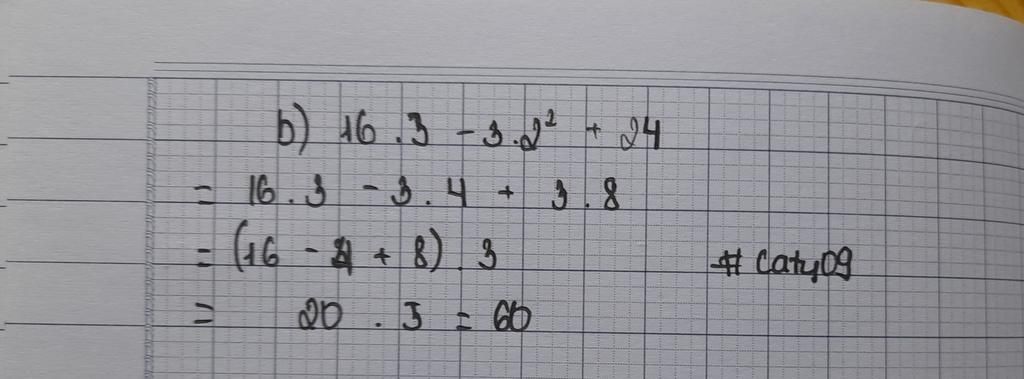 b) 16 . 3 - 3 . 2² + 24
= 16 . 3 - 3 . 4 + 3 . 8
= (16 - 4 + 8) . 3
# Caty09
= 20 . 3 = 60